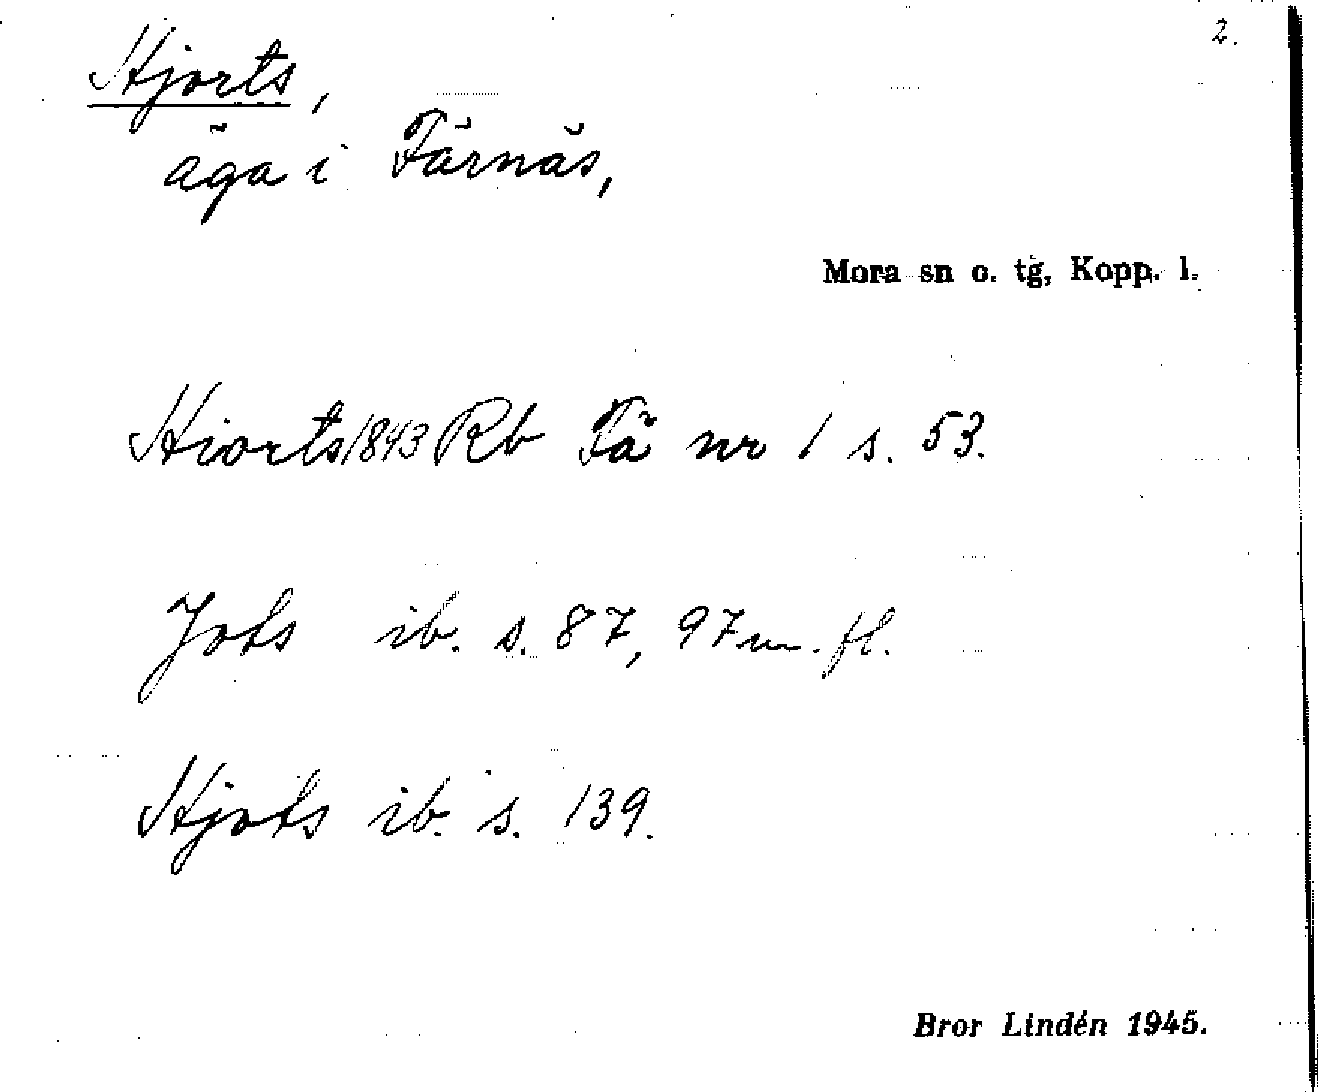 2.
Hjorts,
äga i Färnäs,
Mora sn o. tg, Kopp. l.
Hiorts 1843 Rb Fä nr 1 s. 53.
Jots ib. s. 87, 97 m. fl.
Hjots ib. s. 139.
Bror Lindén 1945.